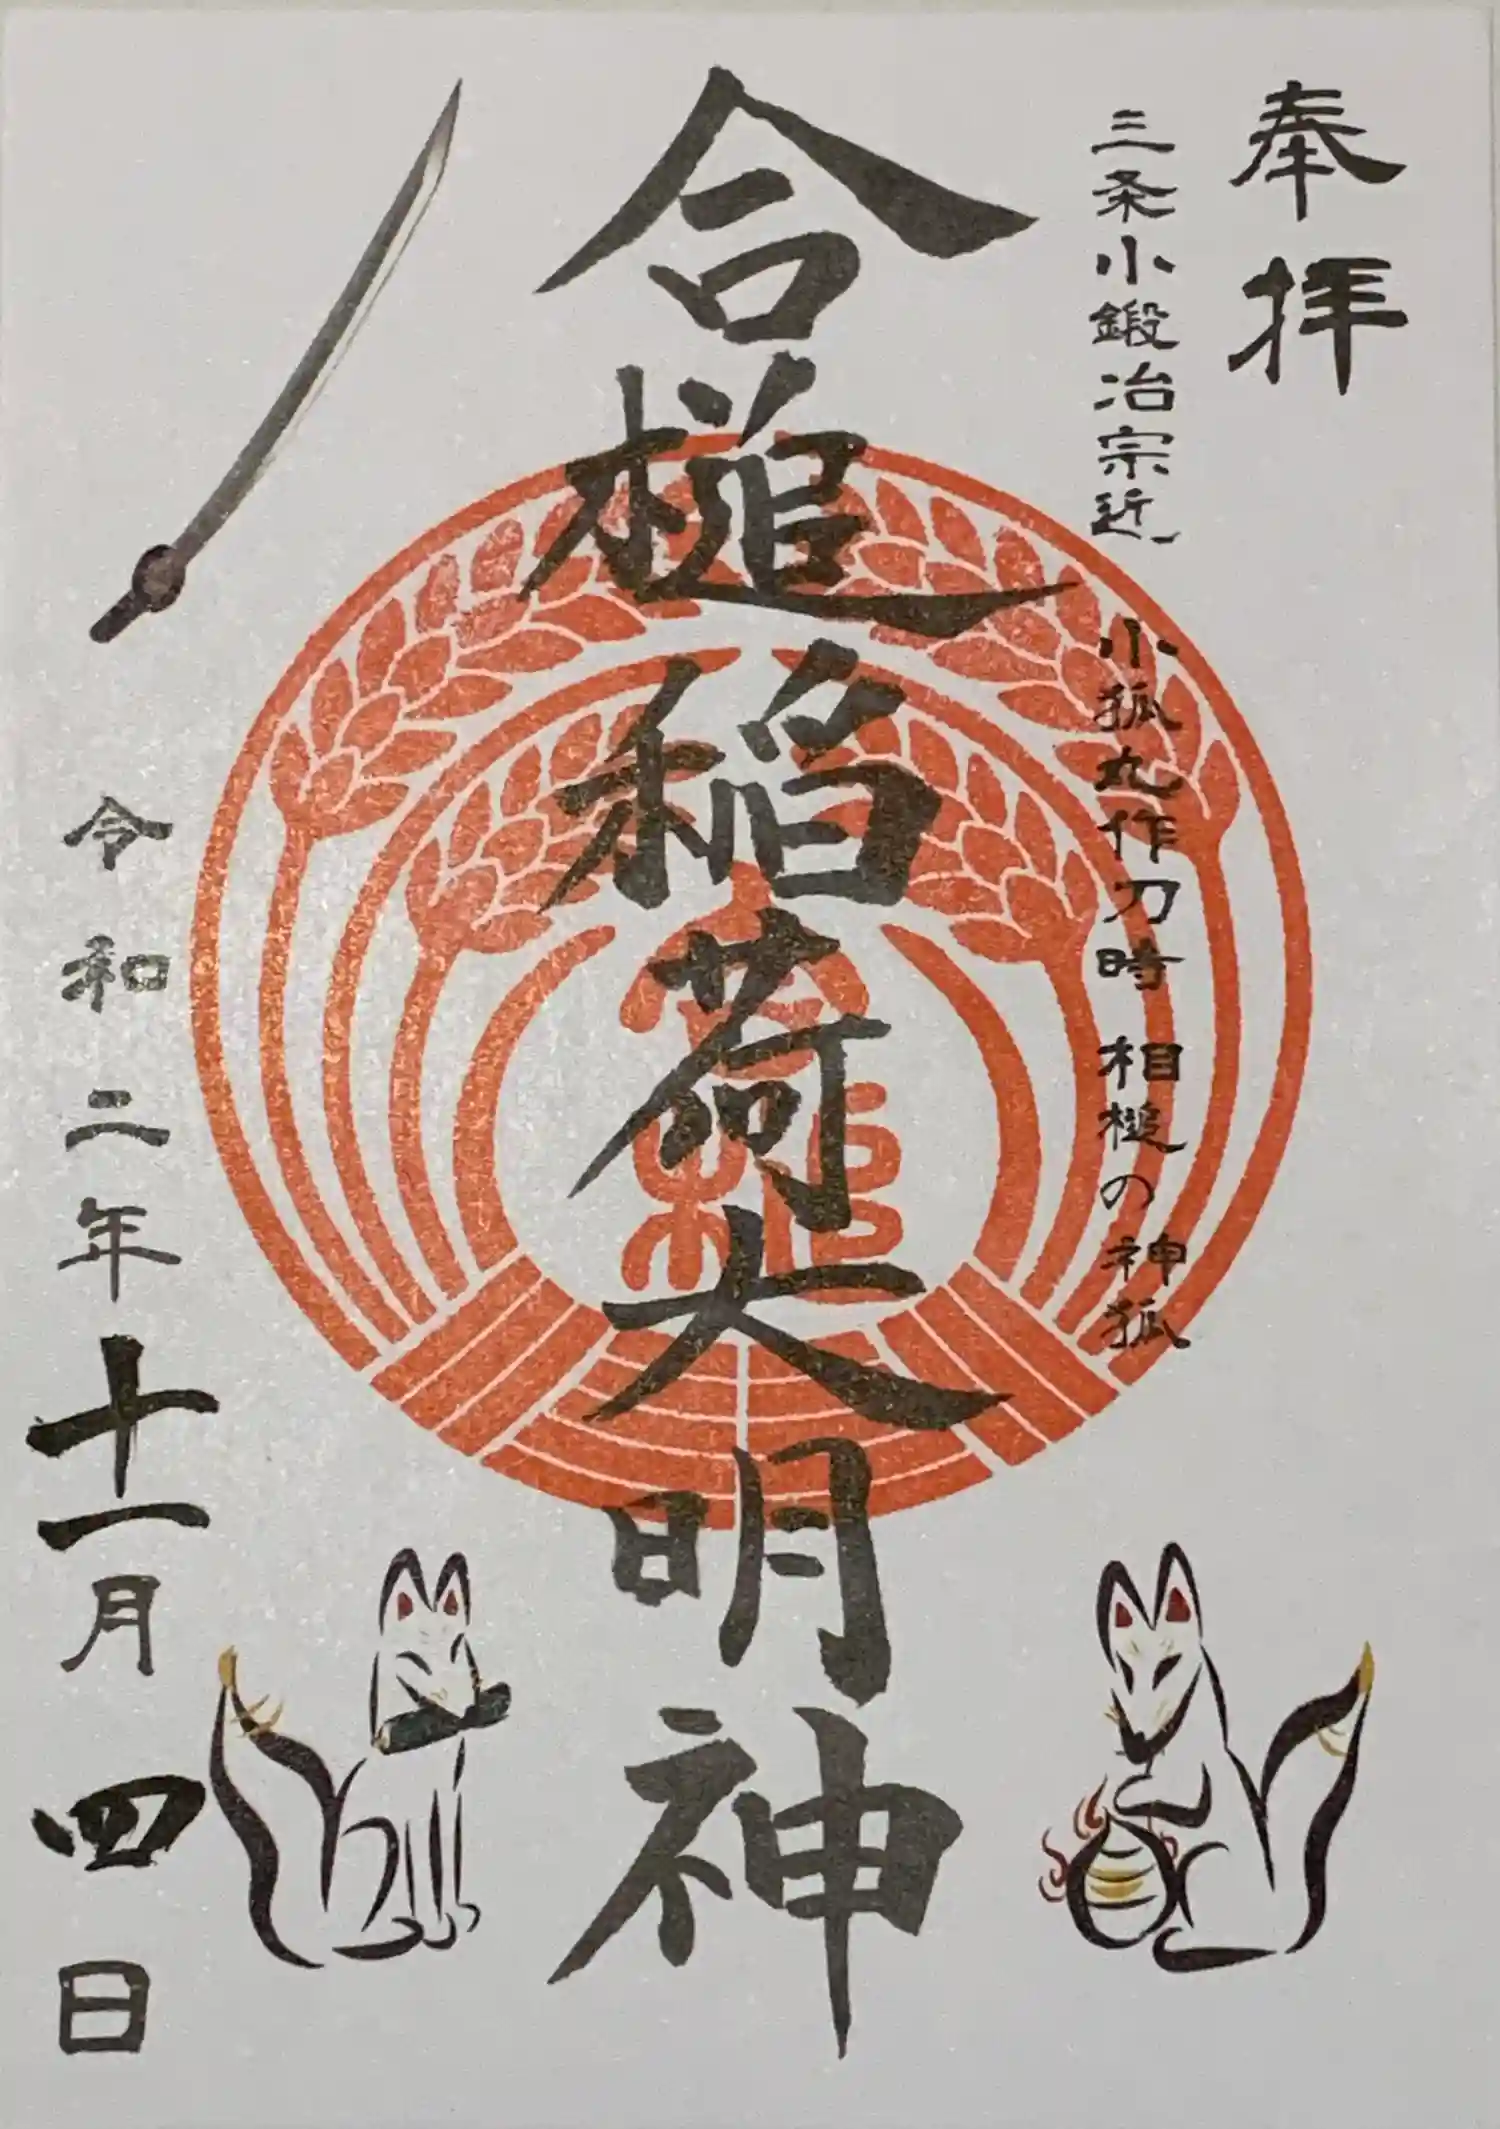 奉拝
三条小鍛冶宗近 小狐丸作刀時 相槌の神狐
合槌稲荷大明神
令和二年十一月四日